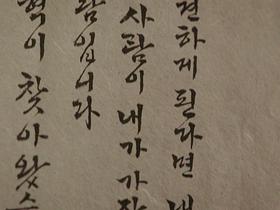 견하게 된다면 내
사람이 내가 가
람입니다
이 찾아왔